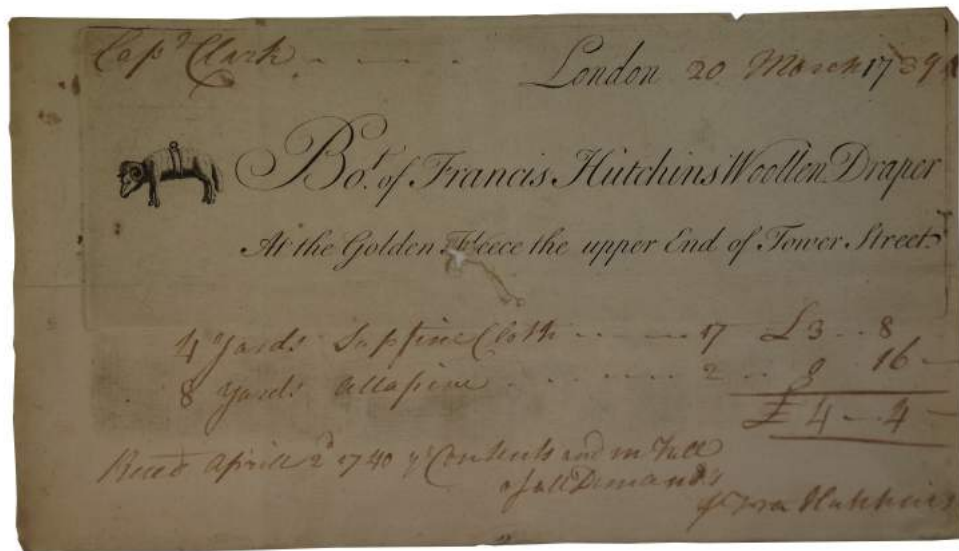 Capt Clark
London 20 March 1739
Bot. of Francis Hutchins Woollen Draper
At the Golden Fleece the upper End of Tower Street
4 Yards Supfine Cloth 17 £3 .. 8
8 Yards allapine 2 .. 16 —
£ 4 .. 4 —
Recd Aprill 2d 1740 ye Contents and in Full
of all Demands
Fra Hutchins